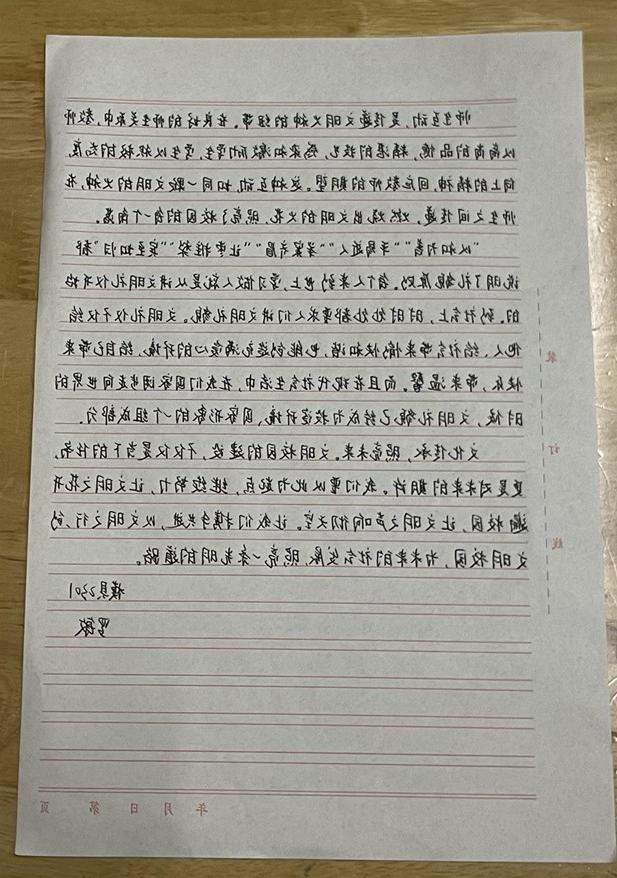 师生互动，是传递文明火种的纽带。在良好的师生关系中，教师
以高尚的品德、精湛的技艺，感染和激励所有学生，学生以积极的态度、
向上的精神，回应教师的期望。这种互动，如同一颗文明的火种，在
师生之间传递，燃烧出文明的火花，照亮了校园的每个角落。
"以和为善""手局迎人""举案齐眉""让枣推梨""宾至如归"都
说明了礼貌原则。每个人来到世上，学习做人就是从讲文明礼仪开始
的。到社会上，时时处处都要求人们讲文明礼貌。文明礼仪不仅给
他人、给社会带来愉快和谐，也能创造充满爱心的环境，给自己带来
快乐，带来温馨。而且在现代社会生活中，在我们国家阔步走向世界的
时候，文明礼貌已经成为投资环境、国家形象的一个组成部分。
文化传承，照亮未来。文明校园的建设，不仅仅是当下的任务，
更是对未来的期许。我们需以此为起点，继续努力，让文明之花开
遍校园，让文明之声响彻天空。让我们携手共进，以文明之行，创
文明校园，为未来的社会发展，照亮一条光明的道路。
模具2301
罗敏
装
订
线
年 月 日 第 页